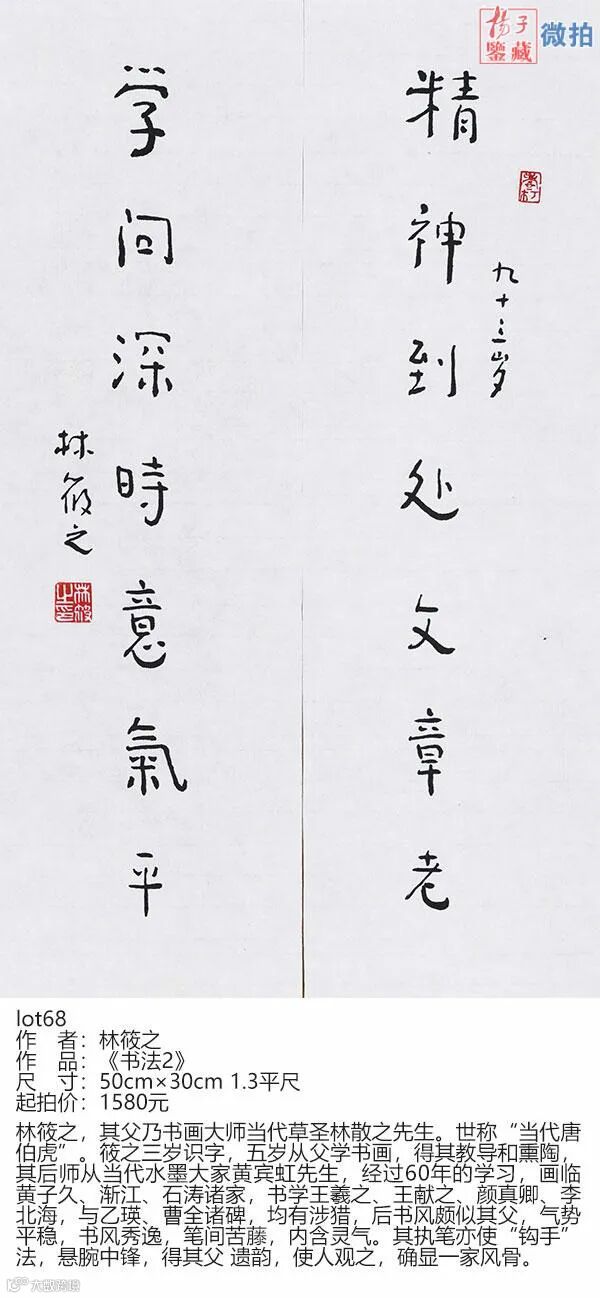 杨子
鉴藏
微拍
精神到处文章老
九十三岁
学问深時意氣平
林筱之
林筱
之印
lot68
作 者：林筱之
作 品：《书法2》
尺 寸：50cm×30cm 1.3平尺
起拍价：1580元
林筱之，其父乃书画大师当代草圣林散之先生。世称“当代唐
伯虎”。筱之三岁识字，五岁从父学书画，得其教导和熏陶，
其后师从当代水墨大家黄宾虹先生，经过60年的学习，画临
黄子久、渐江、石涛诸家，书学王羲之、王献之、颜真卿、李
北海，与乙瑛、曹全诸碑，均有涉猎，后书风颇似其父，气势
平稳，书风秀逸，笔间苦藤，内含灵气。其执笔亦使“钩手”
法，悬腕中锋，得其父 遗韵，使人观之，确显一家风骨。
大数跨境